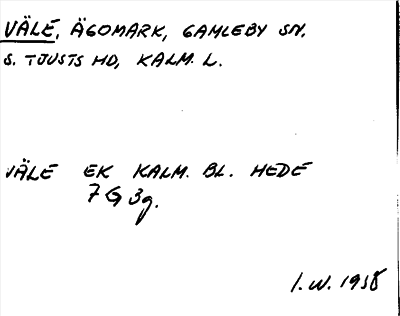 VÄLE, ÄGOMARK, GAMLEBY SN.
S. TJUSTS HD, KALM. L.
VÄLE EK KALM. BL. HEDE
7 G 3g.
I. W. 1958